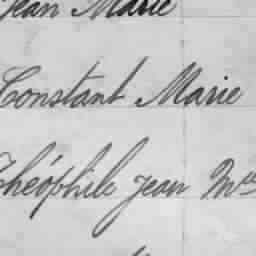 Jean Marie
Constant Marie
Théophile Jean Mie